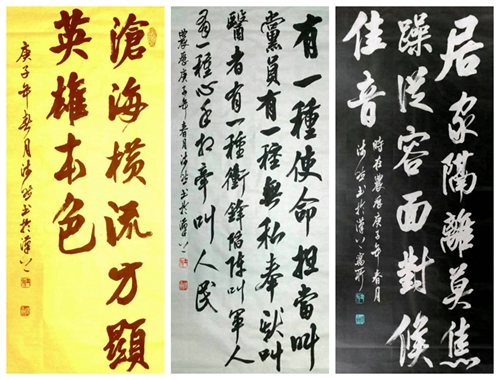 滄海橫流方顯
英雄本色
庚子年春月书於漢上
有一種使命担當叫
黨員有一種無私奉献叫
醫者有一種衝鋒陷陣叫軍人
有一種心手相牽叫人民
農曆庚子年春月书於漢上
居家隔離莫焦
躁從容面對候
佳音
時在農曆庚子年春月
书於漢上寓所